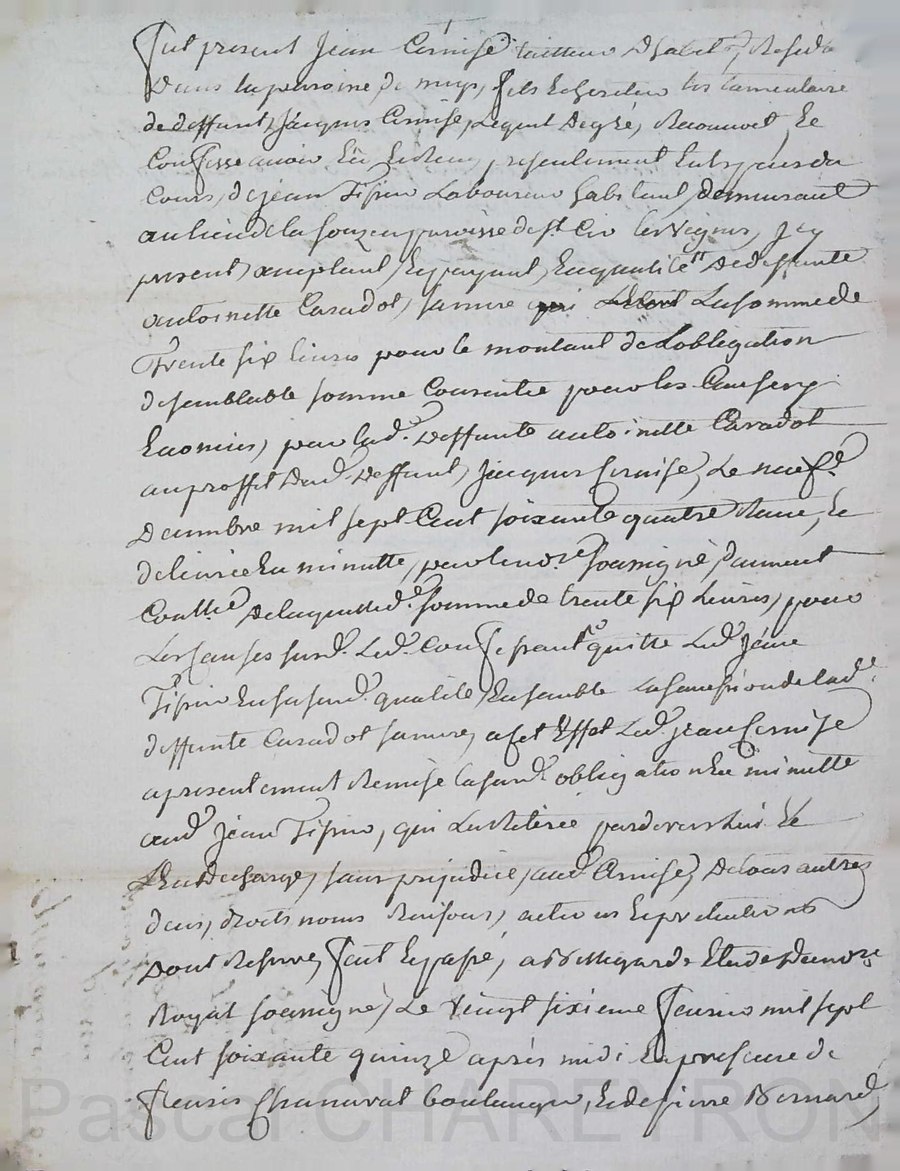 fut present Jean Cernise tailleur d'habits Reside
Dans la paroisse de fils Et heritier testamentaire
de deffunt Jacques Cernise, Lequel De gré, Reconnoit Et
Confesse avoir Eü Et Receu presentement Entry jours du
Cours, de jean Tissier Laboureur habitant demeurant
au lieu de la paroisse de st Cir les Vignes, Icy
present acceptant Et payant En qualité De deffunte
antoinette Caradot sa mere La somme de
Trente six livres pour le montant de Lobligation
de semblable somme Consentie pour les Causes y
Enoncées, par lad.e Deffunte antoinette Caradot
au proffit Dud. Deffunt Jacques Cernise, Le neuf.e
Decembre mil sept Cent soixante quatre Recue, Et
delivrée En minutte, par le no.re soussigné,
Contté De laquelle d.e somme de trente six Livres, pour
Les Causes susd. Led. Confessant quitte Led. Jean
Tissier En sa susd. qualité Ensemble La succession de lad.e
deffunte Caradot sa mere, a cet Effet Led. jean Cernise
a presentement Remise la susd. obligation En minutte
aud. Jean Tissier, qui La Retirée pardevers lui Et
Decharge, sans prejudice, aud. Cernise, De tous autres
deus, droits noms Raisons, actions Et pretentions
Dont Reserve, fait Et passé, Etude Du no.re
Royal soussigné, Le Vingt sixieme fevrier mil sept
Cent soixante quinze après midi En presence de
Chanaval boulanger, Et de pierre Bernard
Pascal CHAREYRON